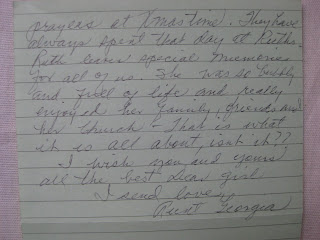 prayers at Xmastime. They have
always spent that day at Ruths.
Ruth leaves special memories
for all of us. She was so bubbly
and full of life and really
enjoyed her family, friends and
her Church - That is what
it is all about, isn't it??
I wish you, and yours
all the best dear girl
I send love
Aunt Georgia